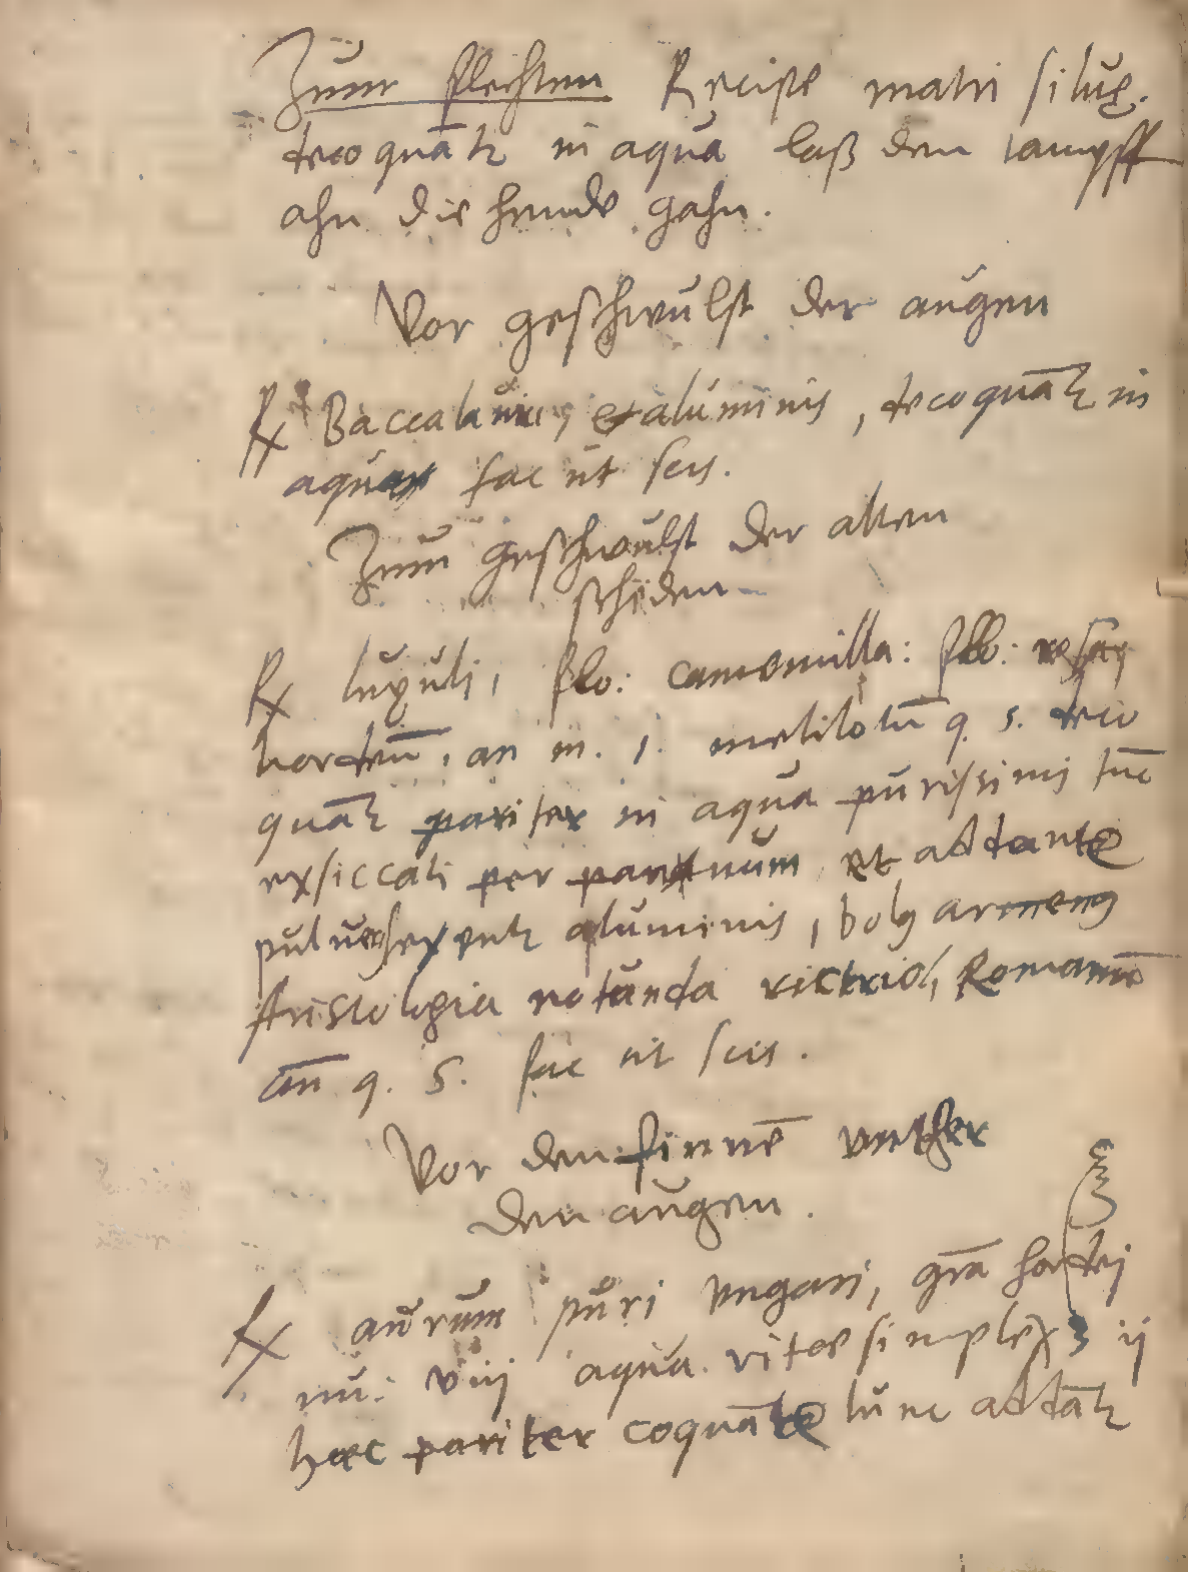 Zum flechten Recipe matri silue.
decoquātr in aqua laß den dampff
ahn die hende gahn.
Vor geschwulst der augen
℞ Baccalauri et aluminis, decoquātr in
aqua fac ut scis.
Zum geschwulst der alten
scheden
℞ lupuli, flo: camomilla: flo: rosarꝫ
hordeū, an m. j. melilotū q. s. deco
quātr pariter in aqua purissimis tūc
exsiccati per pannum et addante
aluminis, bolꝫ armenꝫ
Aristologia rotunda victriol, Romanū
an q. s. fac ut scis.
Vor den finnē vnther
den augen.
℞ aurum puri vngari, grā hordej
nu: viij aqua. vitae simplex ʒ ij
haec pariter coquāte tunc addātr